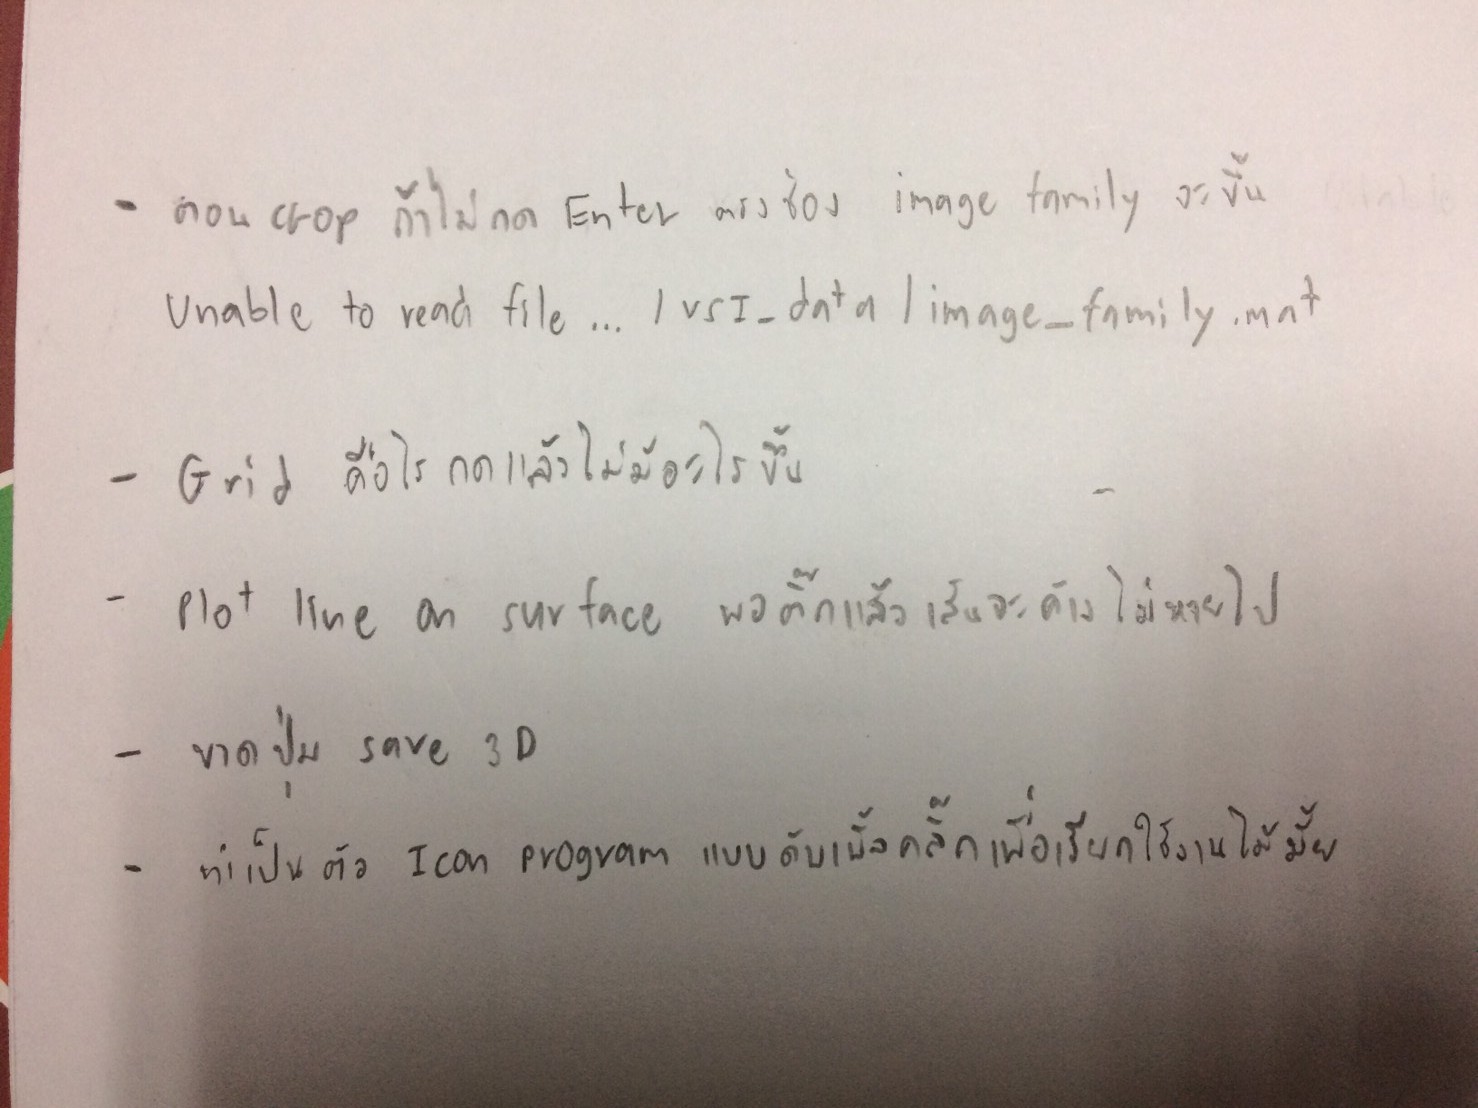 - ตอน crop ถ้าไม่กด Enter ตรงช่อง image family จะขึ้น
Unable to read file ... / VSI_data / image_family.mat
- Grid คือไร กดแล้วไม่มีอะไรขึ้น
- Plot line on surface พอติ๊กแล้วเส้นจะค้างไม่หายไป
- ขาดปุ่ม save 3D
- ทำเป็นตัว Icon program แบบดับเบิ้ลคลิ๊กเพื่อเรียกใช้งานได้มั้ย